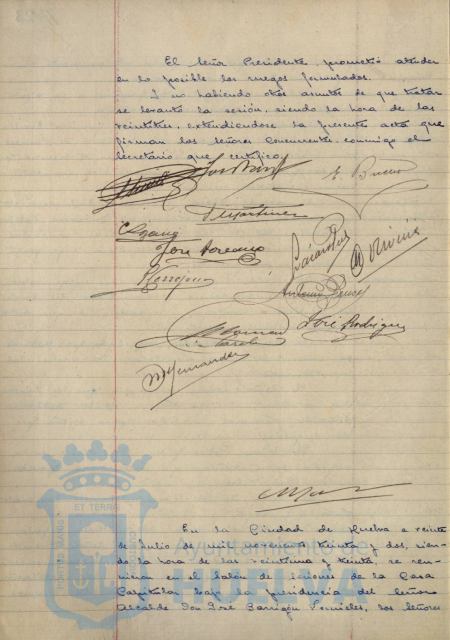 El Señor Presidente, prometió atender
en lo posible los ruegos formulados.
Y no habiendo otros asuntos de que tratar
se levantó la sesión, siendo la hora de las
veintitres, extendiendose la presente acta que
firman los señores concurrentes, conmigo el
Secretario que certifico.
J. Bueno
F. Martinez
José Lorenzo
José Rodriguez
M. Hernandez
ET TERRAE
En la Ciudad de Huelva a veinte
de Julio de mil novecientos treinta y dos, sien-
do la hora de las veintiuna y treinta, se reu-
nieron en el Salon de sesiones de la Casa
Capitular bajo la presidencia del Señor
Alcalde Don José Barrigón Fornieles, los Señores
Ayuntamiento de
HUELVA